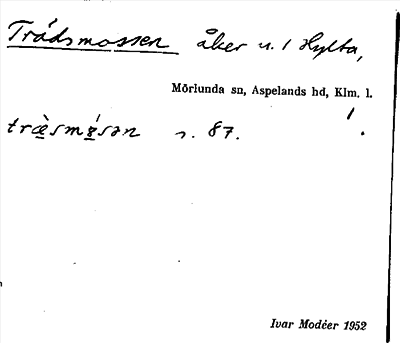 Trädsmossen åker u. / Hylta,
Mörlunda sn, Aspelands hd, Klm. l.
s. 87.
Ivar Modéer 1952